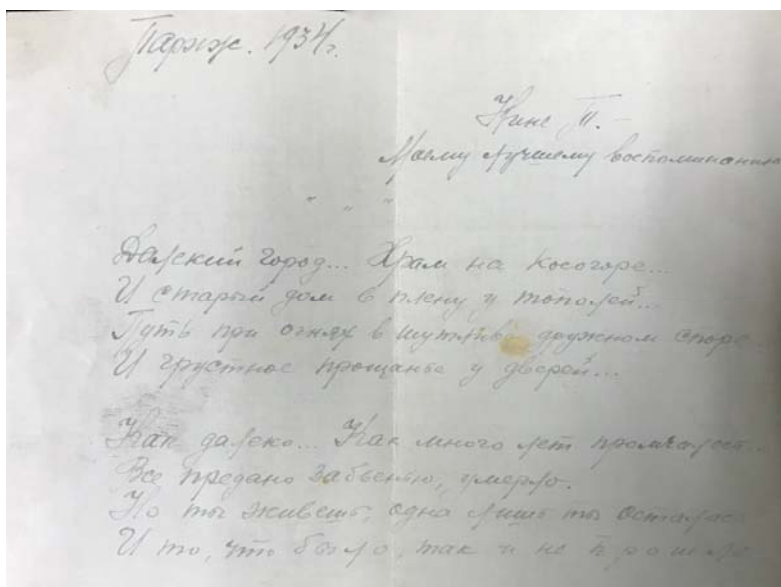 Париж. 1934г.
Нине П. –
Моему лучшему воспоминанию
" " "
Далекий город... Храм на косогоре...
И старый дом в плену у тополей...
Путь при огнях в шутливо дружном споре
И грустное прощанье у дверей...
Как далеко... Как много лет промчалось...
Все предано забвенью, умерло.
Но ты живешь, одна лишь ты осталась
И то, что было, так и не прошло